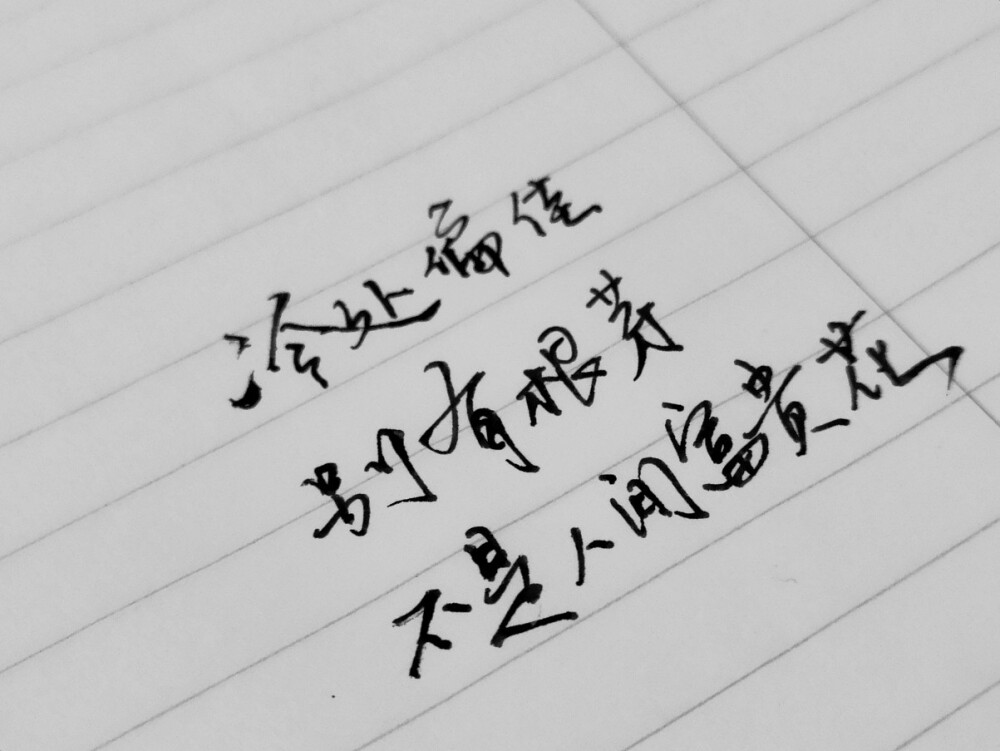 冷处偏佳
别有根芽
不是人间富贵花